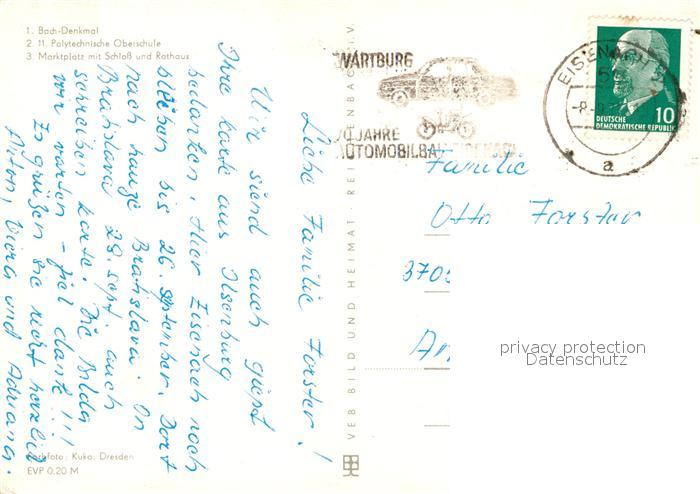 1. Bach-Denkmal
2. 11. Polytechnische Oberschule
3. Marktplatz mit Schloß und Rathaus
Liebe Familie Forster!
Wir siend auch
Ihre karte aus Ilsenburg
bedanken. Hier Eisenach noch
bleiben bis 26. september. Dort
nach hauze Bratislava. On
Bratislava 28. sept. auch
schreiben karte. Die Bilda
wir warten - fiel dank!!!
Es grüßen sie recht herzlich
Anton, Viera und Adriana.
Farbfoto: Kuka, Dresden
EVP 0,20 M
VEB BILD UND HEIMAT REICHENBACH I. V.
WARTBURG
70 JAHRE
AUTOMOBILBAU EISENACH
EISENACH
a
10
DEUTSCHE
DEMOKRATISCHE REPUBLIK
Familie
Otto Forster
3705
privacy protection
Datenschutz